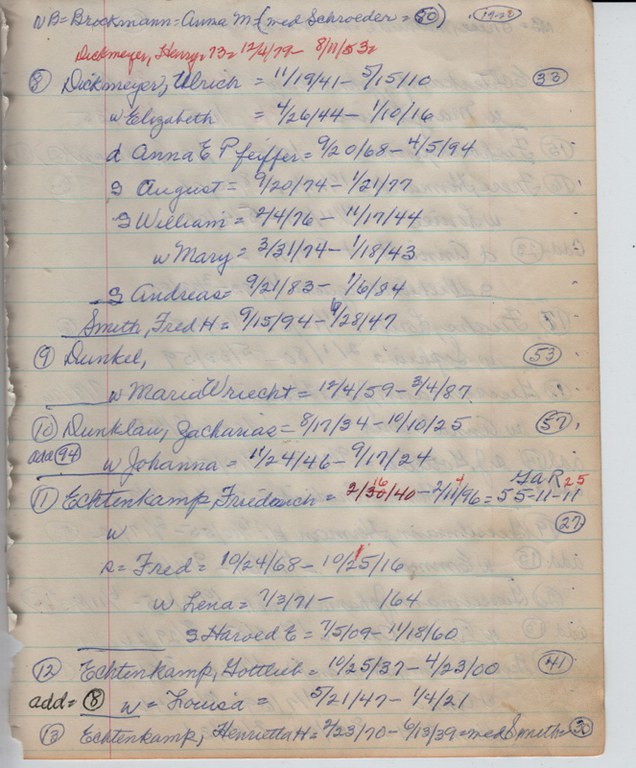 NB = Brockmann = Anna M - (med Schroeder = 50)
Dickmeyer, Henry = 73 = 12/4/79 - 8/11/53
8 Dickmeyer, Ulrich = 11/19/41 - 5/15/10 33
w Elizabeth = 4/26/44 - 1/10/16
d Anna E Pfeiffer = 9/20/68 - 4/5/94
S August = 9/20/74 - 1/21/77
S William = 2/4/76 - 11/17/44
w Mary = 3/31/74 - 1/18/43
S Andreas = 9/21/83 - 1/6/84
Smith, Fred H = 9/15/94 - 6/28/47
9 Dunkel, 53
w Maria Wriecht = 12/4/59 - 3/4/87
10 Dunklau, Zacharias = 8/17/34 - 10/10/25 57
add 94 w Johanna = 11/24/46 - 9/17/24
GaR 25
11 Echtenkamp, Friedarich = 2/ /40 - 2/11/96 = 55-11-11
w 27
s = Fred = 10/24/68 - 10/ /16
w Lena = 7/3/71 - /64
S Harved E = 7/5/09 - 11/18/60
12 Echtenkamp, Gottlieb = 10/25/37 - 4/23/00 41
add = 8 w = Louisa = 5/21/47 - 1/4/21
13 Echtenkamp, Henrietta H = 2/23/70 - 6/13/39 = med Smith = 30